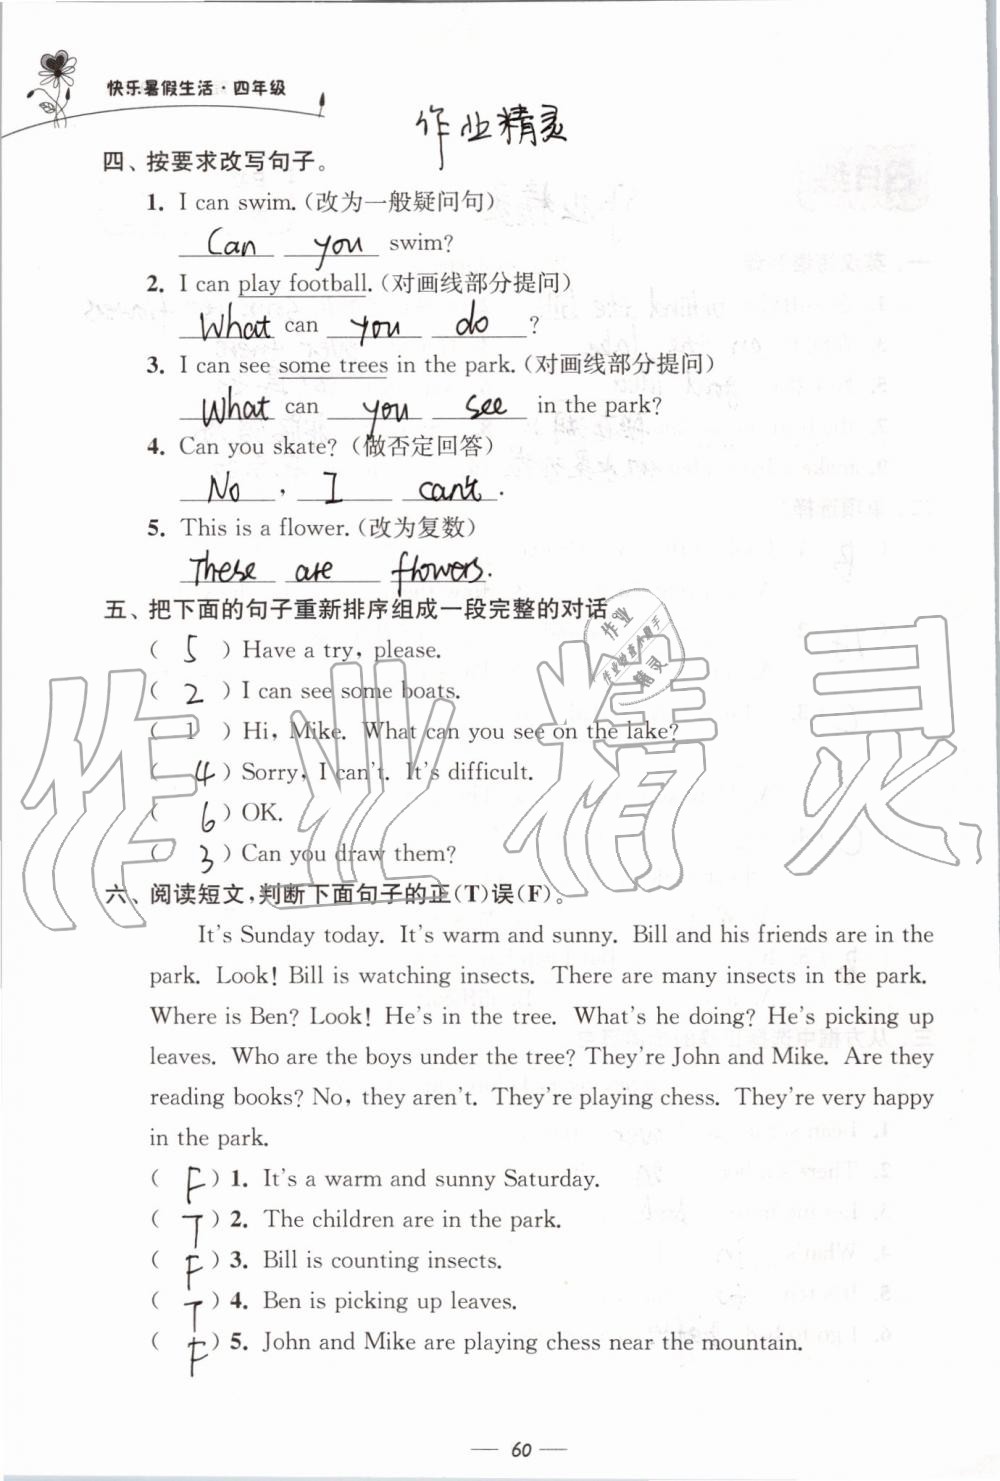 快乐暑假生活·四年级
作业精灵
四、按要求改写句子。
1. I can swim. (改为一般疑问句)
Can you swim?
2. I can play football. (对画线部分提问)
What can you do ?
3. I can see some trees in the park. (对画线部分提问)
What can you see in the park?
4. Can you skate? (做否定回答)
No , I can't .
5. This is a flower. (改为复数)
These are flowers.
五、把下面的句子重新排序组成一段完整的对话
( 5 ) Have a try, please.
( 2 ) I can see some boats.
( 1 ) Hi, Mike. What can you see on the lake?
( 4 ) Sorry, I can't. It's difficult.
( 6 ) OK.
( 3 ) Can you draw them?
六、阅读短文,判断下面句子的正(T)误(F)。
It's Sunday today. It's warm and sunny. Bill and his friends are in the
park. Look! Bill is watching insects. There are many insects in the park.
Where is Ben? Look! He's in the tree. What's he doing? He's picking up
leaves. Who are the boys under the tree? They're John and Mike. Are they
reading books? No, they aren't. They're playing chess. They're very happy
in the park.
( F ) 1. It's a warm and sunny Saturday.
( T ) 2. The children are in the park.
( F ) 3. Bill is counting insects.
( T ) 4. Ben is picking up leaves.
( F ) 5. John and Mike are playing chess near the mountain.
— 60 —
作业精灵
作业
精灵